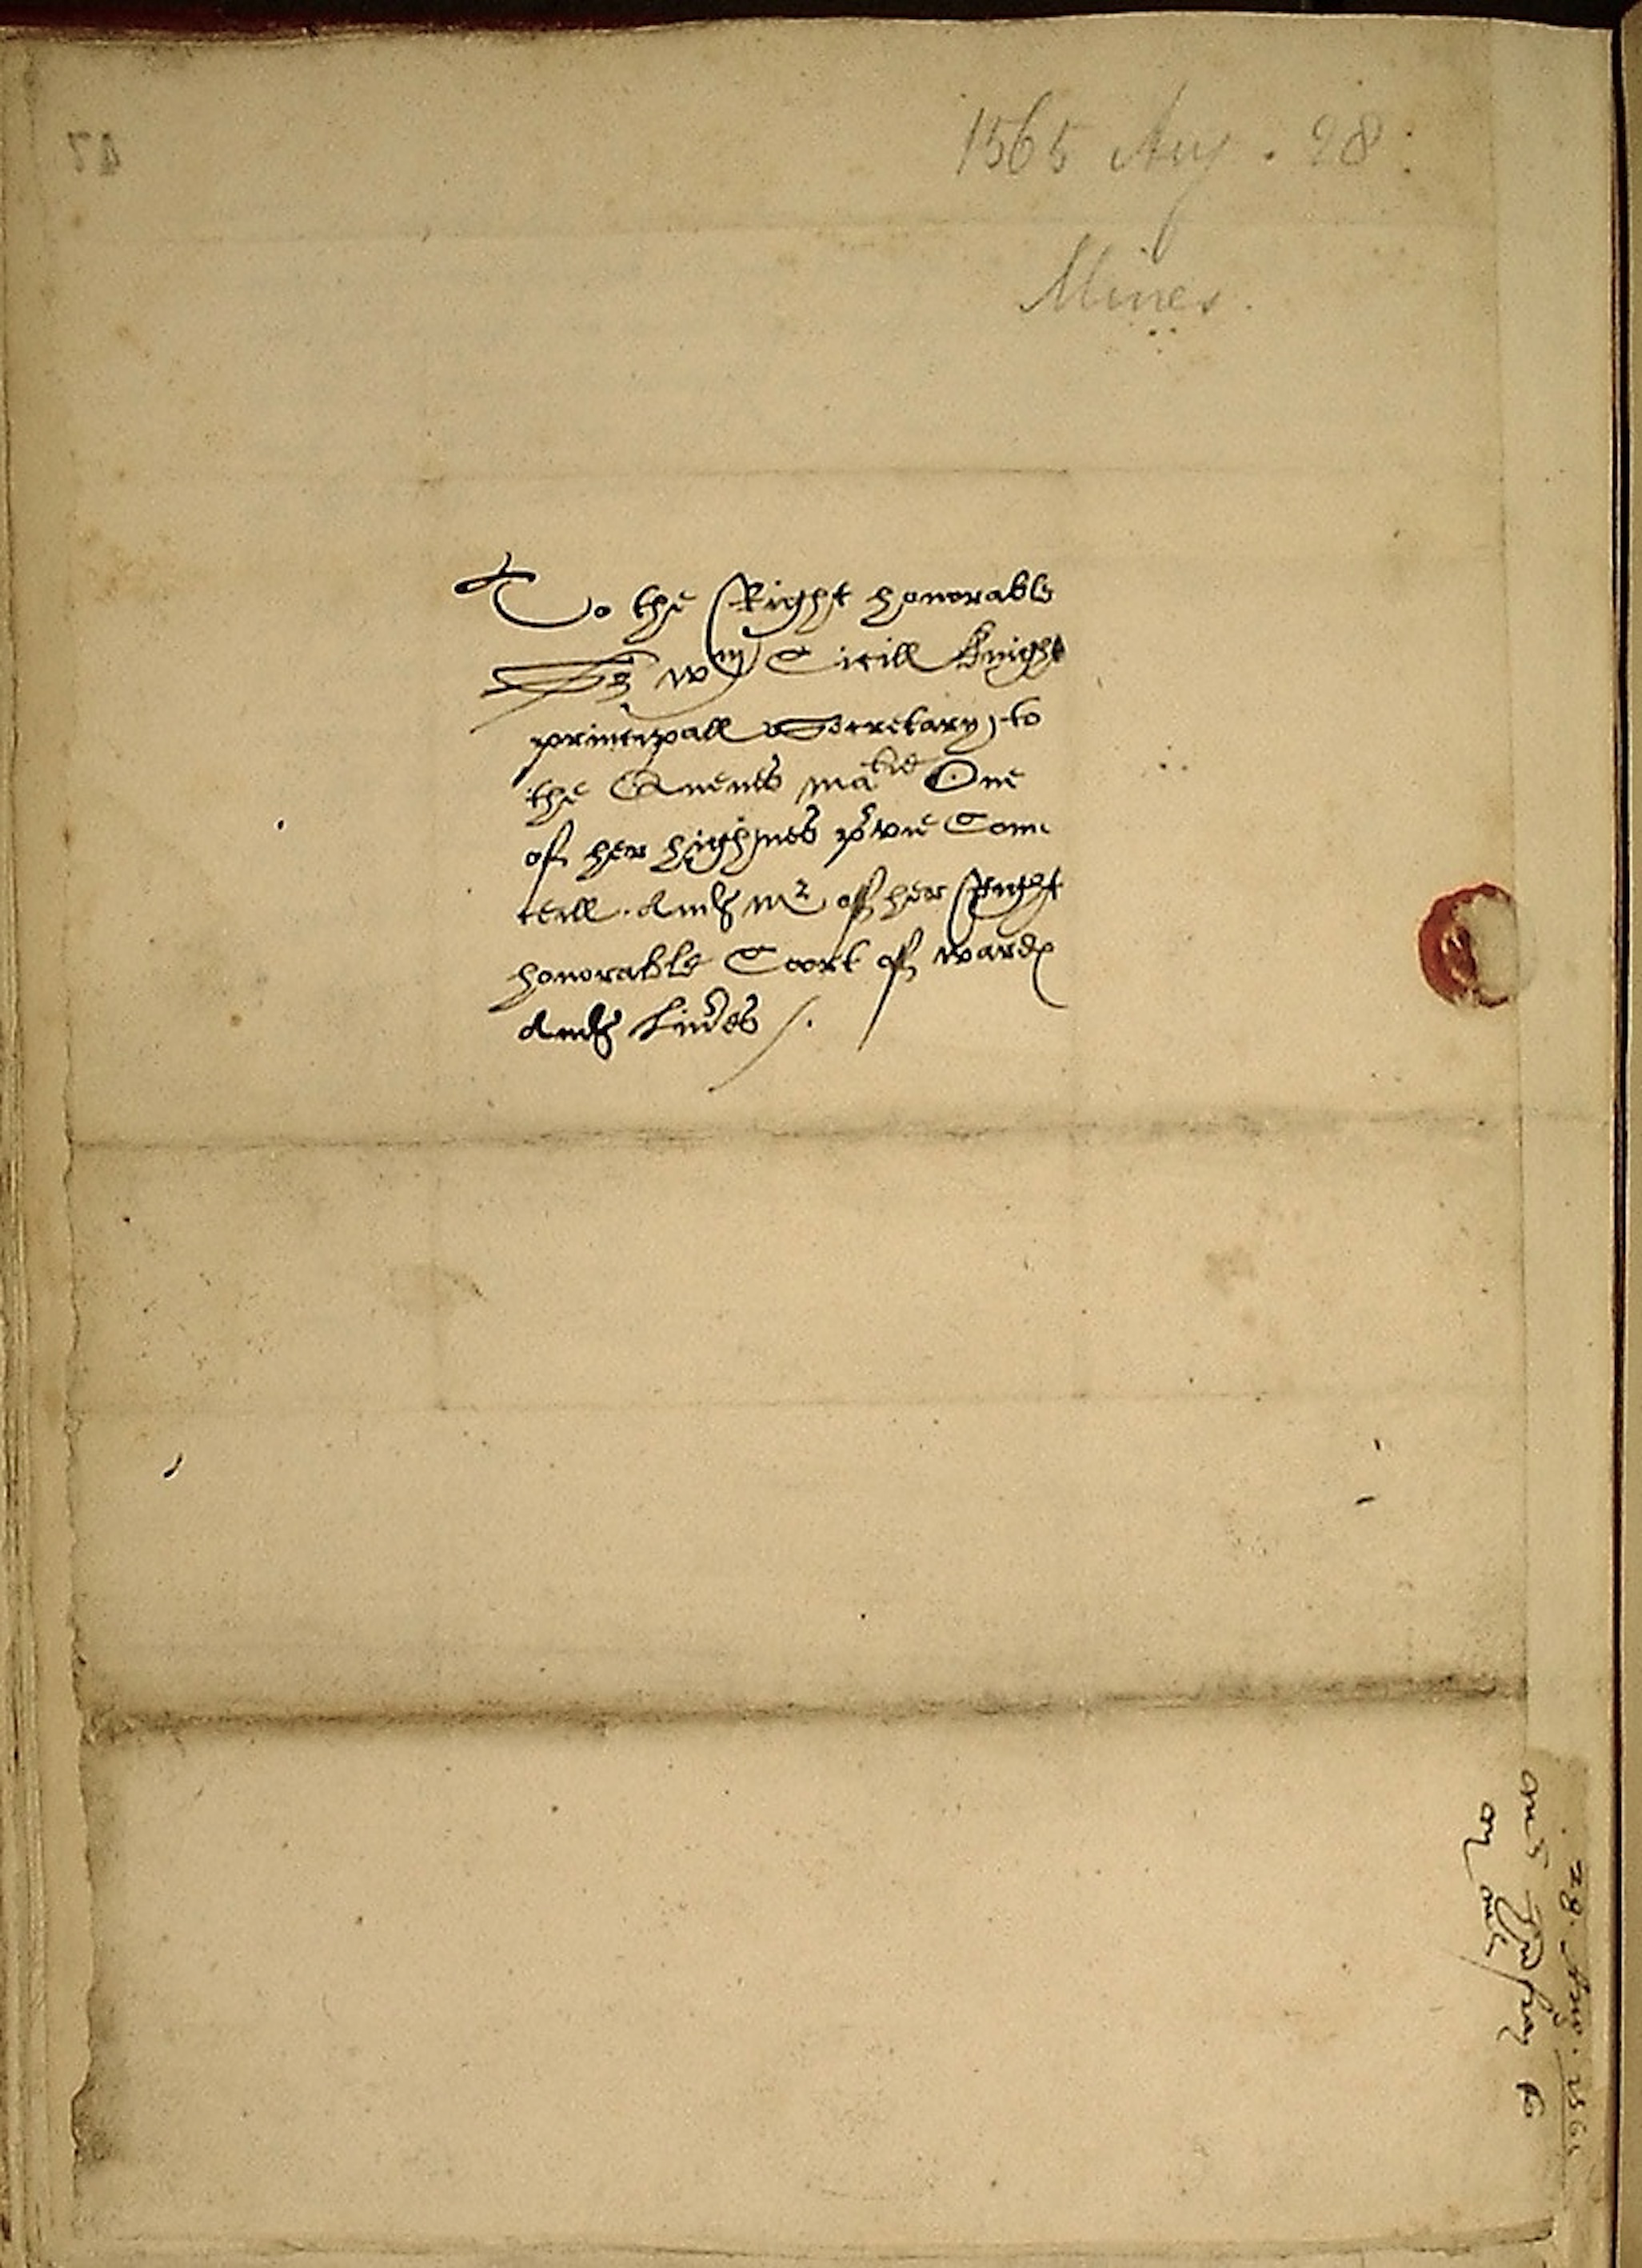 47
1565 Aug. 28.
Mines.
To the Right honorable
Sr Wm Cicill Knight
principall Secretary, to
the Quenes matie One
of her highnes prvie Coun
cell. And Mr of her Right
honorable Coort of wardes
And Liv'es /.
28. Aug. 1565